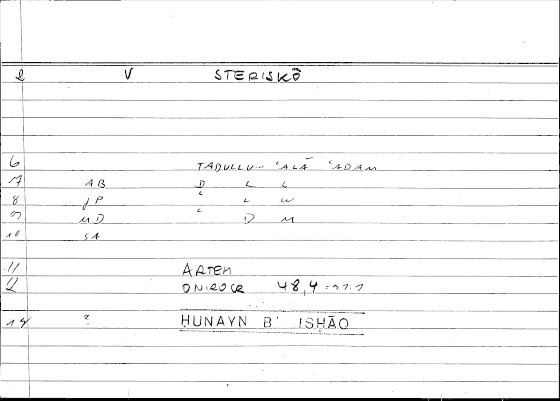 2 V STERISKŌ
6 TADULLU ʿALĀ ʿADAM
7 AB D L L
8 JP ʿ L W
9 MD ʿ D M
10 SA
11 ARTEM
12 ONIROCR 48,4 =
14 ? ḤUNAYN B' ISḤĀQ